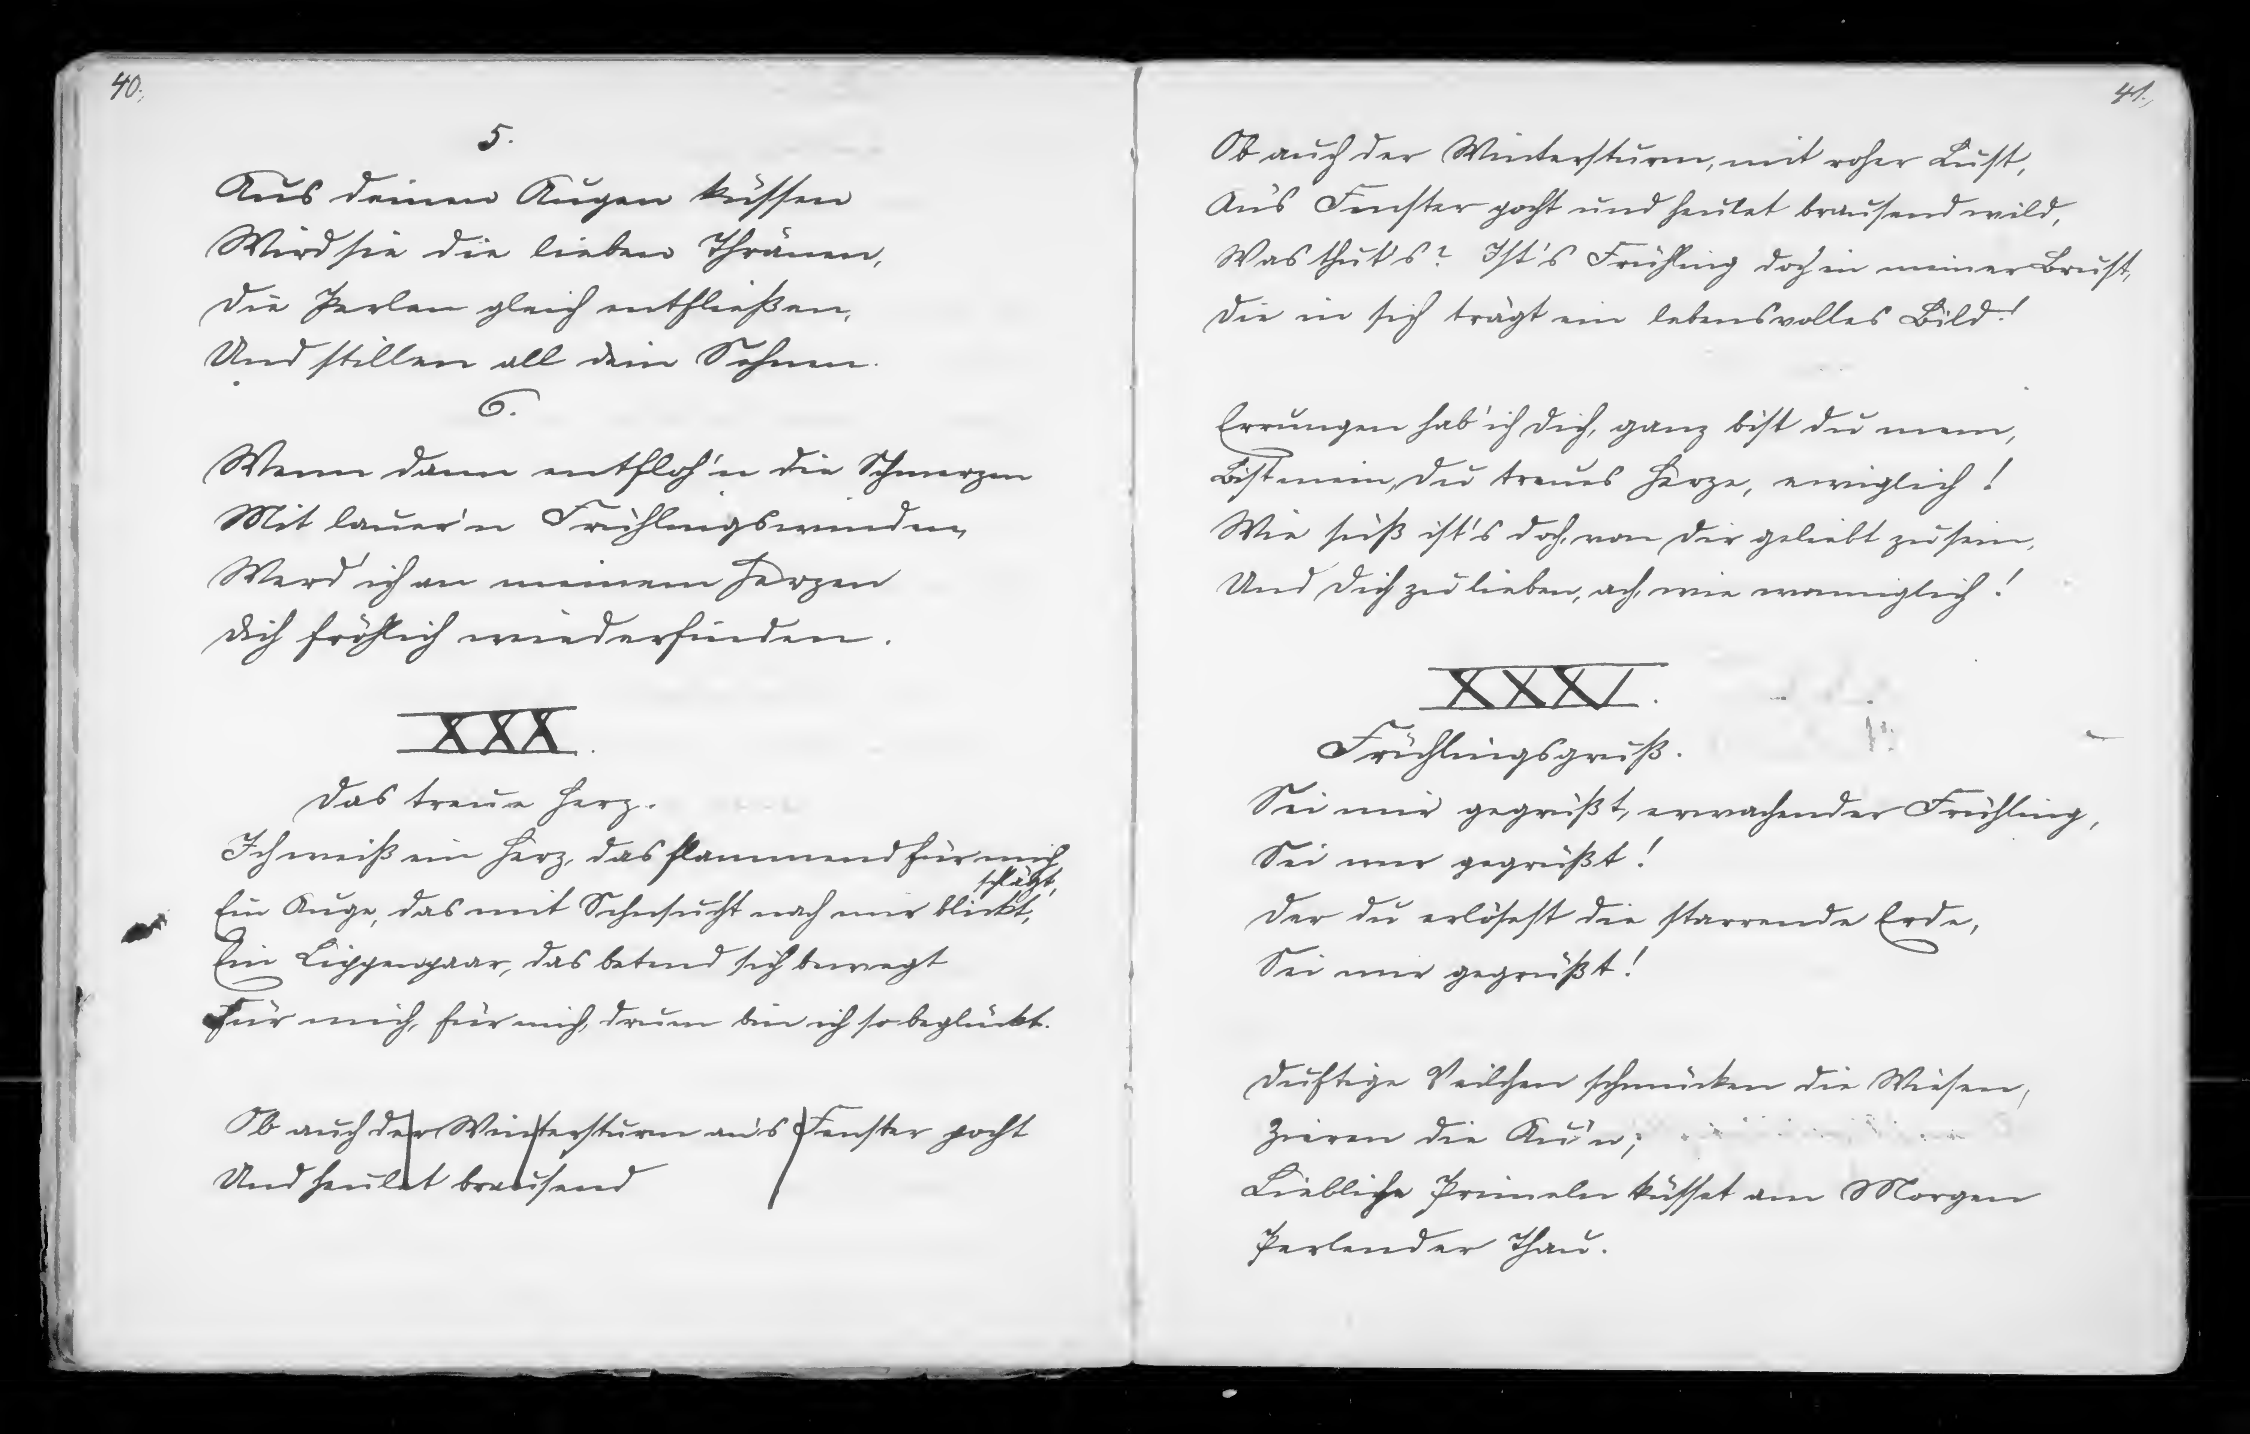 40.
5.
Aus deinen Augen küssen
Wird sie die lieben Thränen,
Die Perlen gleich entfließen,
Und stillen all dein Sehnen.
6.
Wenn dann entfloh'n die Schmerzen
Mit lauer'n Frühlingswinden,
Werd' ich an meinem Herzen
Dich fröhlich wiederfinden.
XXX.
Das treue Herz.
Ich weiß ein Herz, das flammend für mich
schlägt,
Ein Auge, das mit Sehnsucht nach mir blickt,
Ein Lippenpaar, das betend sich bewegt
Für mich, für mich, drum bin ich so beglückt.
Ob auch der Wintersturm an's Fenster pocht
Und heulet brausend
41.
Ob auch der Wintersturm, mit roher Lust,
An's Fenster pocht und heulet brausend wild,
Was thut's? Ist's Frühling doch in meiner Brust,
Die in sich trägt ein lebensvolles Bild!
Errungen hab' ich dich, ganz bist du mein,
Bist mein, du treues Herze, ewiglich!
Wie süß ist's doch, von dir geliebt zu sein,
Und dich zu lieben, ach, wie wonniglich!
XXXI.
Frühlingsgruß.
Sei mir gegrüßt, erwachender Frühling,
Sei mir gegrüßt!
Der du erlösest die starrende Erde,
Sei mir gegrüßt!
Duftige Veilchen schmücken die Wiesen,
Zieren die Au'n;
Liebliche Primeln küsset am Morgen
Perlender Thau.